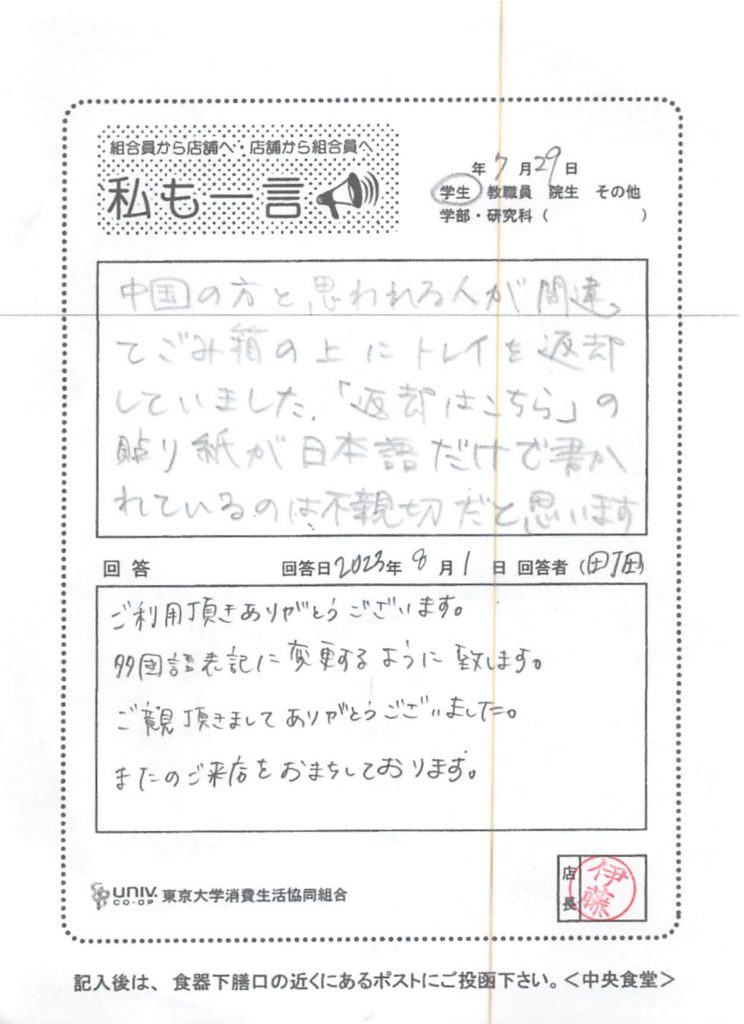 組合員から店舗へ・店舗から組合員へ
私も一言
年 7 月 29 日
学生 教職員 院生 その他
学部・研究科（　　　　）
中国の方と思われる人が間違っ
てごみ箱の上にトレイを返却
していました。「返却はこちら」の
貼り紙が日本語だけで書か
れているのは不親切だと思います
回答 回答日2023年 8 月 1 日 回答者（田
ご利用頂きありがとうございます。
多国語表記に変更するように致します。
ご意見頂きましてありがとうございました。
またのご来店をおまちしております。
UNIV. CO-OP 東京大学消費生活協同組合
店長 伊藤
記入後は、食器下膳口の近くにあるポストにご投函下さい。＜中央食堂＞